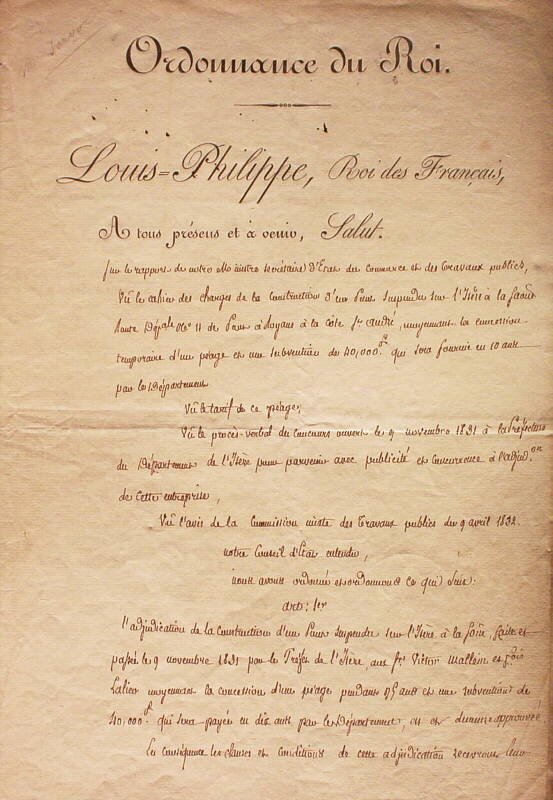 Ordonnance du Roi.
Louis=Philippe, Roi des Français,
A tous présens et à venir, Salut.
Sur le rapport de notre Ministre secrétaire d'Etat du Commerce et des travaux publics,
Vu le cahier des charges de la construction d'un Pont suspendu sur l'Isère à la
route Dép.ale No 11 de Pont à Royans à la côte St. andré, moyennant la concession
temporaire d'un péage et une subvention de 40,000.f qui sera fournie en 10 ans
par le Département
Vu le tarif de ce péage,
Vu le procès-verbal du concours ouvert le 9 novembre 1831 à la Préfecture
du Département de l'Isère pour parvenir avec publicité et concurrence à l'adjud.on
de cette entreprise,
Vu l'avis de la Commission mixte des travaux publics du 9 avril 1832.
notre Conseil d'Etat entendu,
nous avons ordonné et ordonnons ce qui suit:
art: 1er
l'adjudication de la construction d'un Pont suspendu sur l'Isère à la faite et
passée le 9 novembre 1831 par le Préfet de l'Isère, aux Srs Victor Mallein et
moyennant la concession d'un péage pendant ans et une subvention de
40,000.f qui sera payée en dix ans par le Département, est et demeure approuvée
En conséquence les clauses et conditions de cette adjudication recevront leur